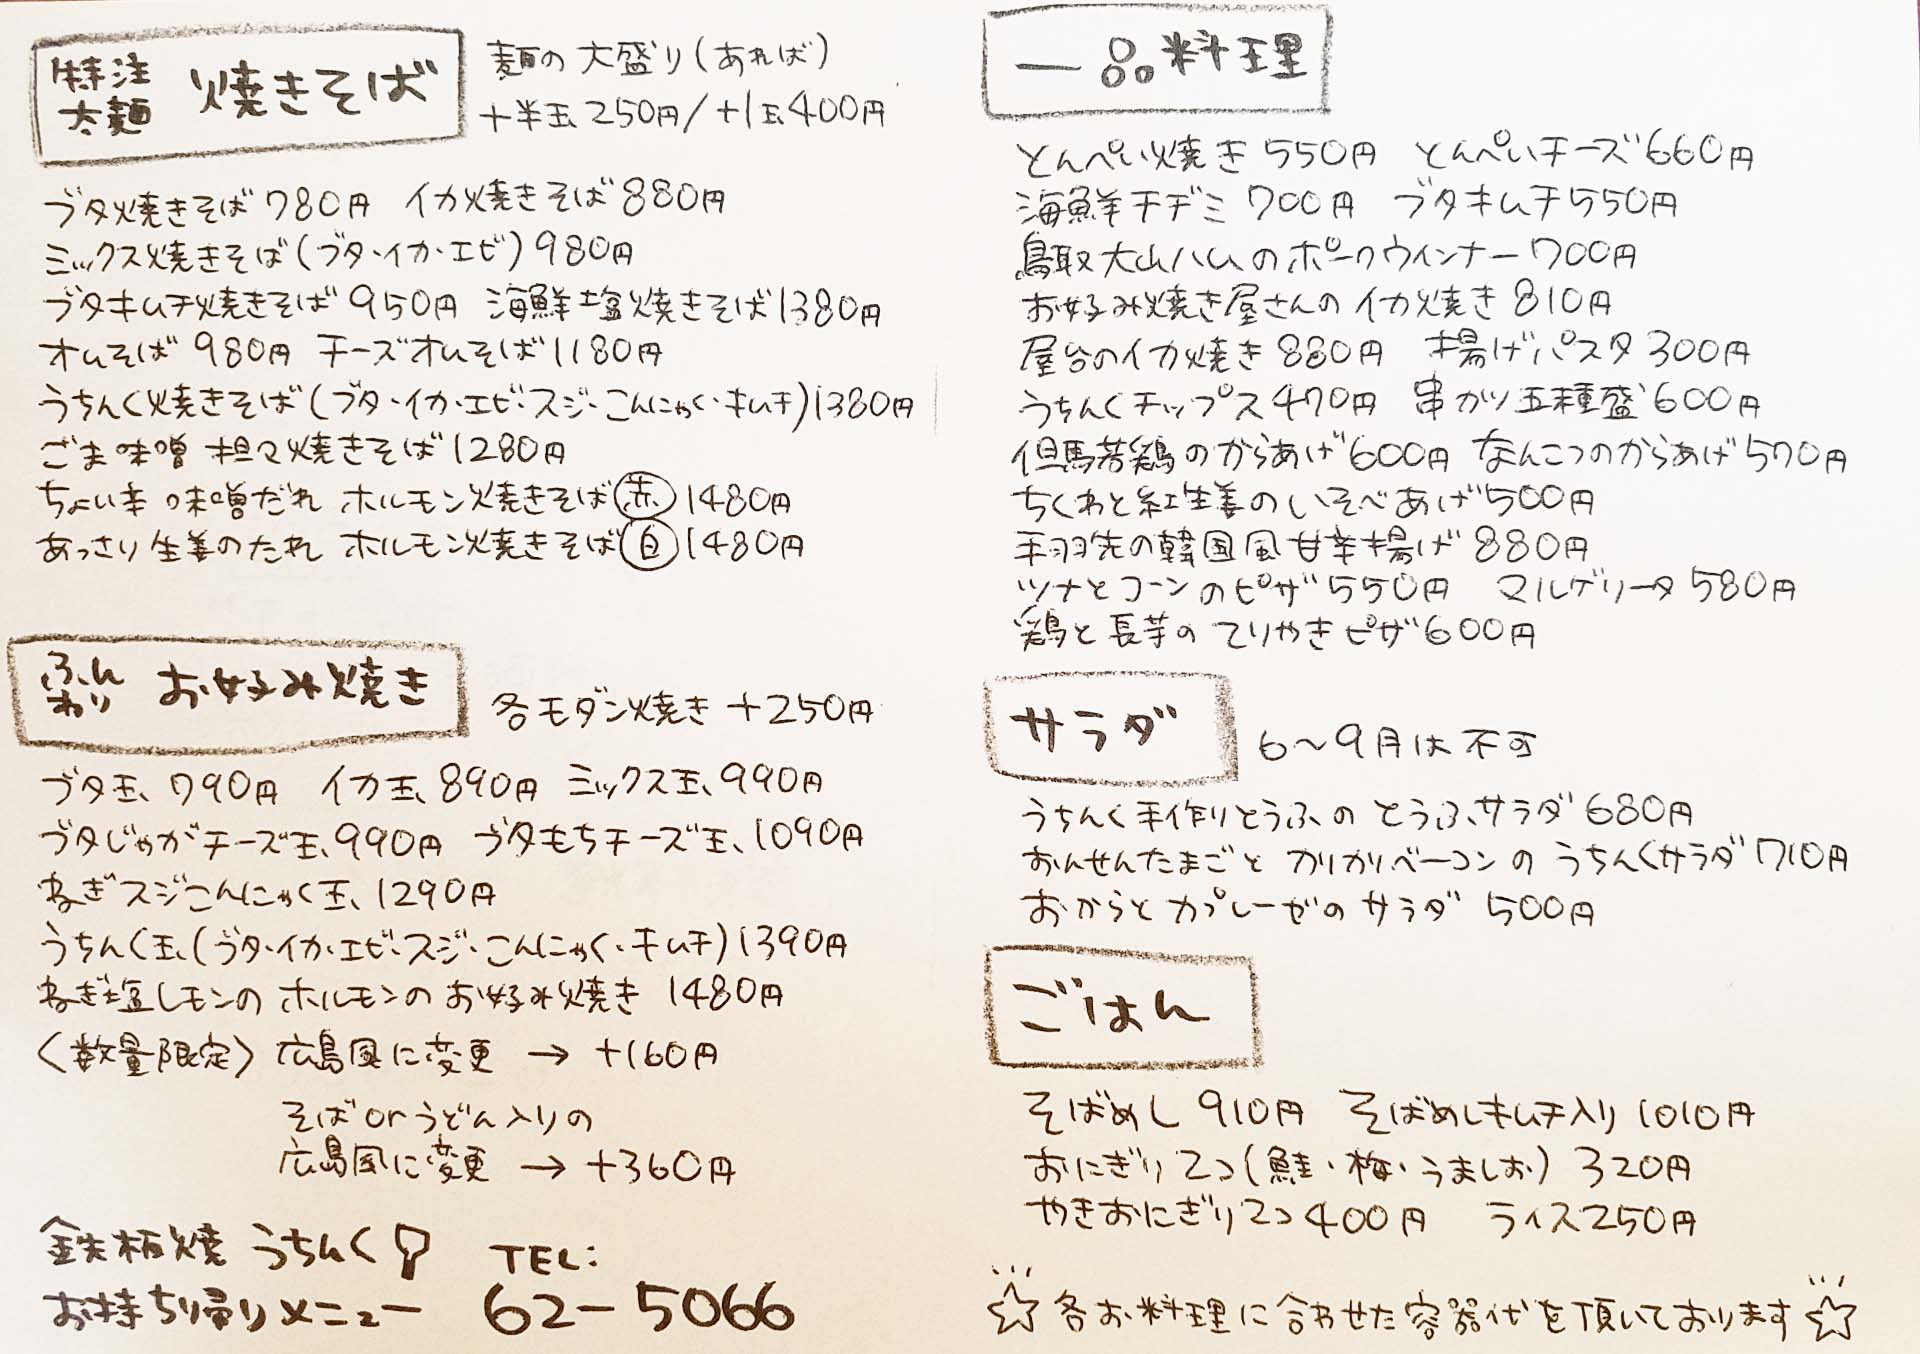 特注
太麺 焼きそば
麺の大盛り(あれば)
+半玉250円/+1玉400円
ブタ焼きそば780円 イカ焼きそば880円
ミックス焼きそば(ブタ・イカ・エビ)980円
ブタキムチ焼きそば950円 海鮮塩焼きそば1380円
オムそば980円 チーズオムそば1180円
うちんく焼きそば(ブタ・イカ・エビ・スジ・こんにゃく・キムチ)1380円
ごま味噌 担々焼きそば1280円
ちょい辛 味噌だれ ホルモン焼きそば赤 1480円
あっさり生姜のたれ ホルモン焼きそば白 1480円
ふん
わり お好み焼き
各モダン焼き +250円
ブタ玉、790円 イカ玉、890円 ミックス玉、990円
ブタじゃがチーズ玉、990円 ブタもちチーズ玉、1090円
ねぎスジこんにゃく玉、1290円
うちんく玉、(ブタ・イカ・エビ・スジ・こんにゃく・キムチ)1390円
ねぎ塩レモンの ホルモンの お好み焼き 1480円
〈数量限定〉広島風に変更 → +160円
そばorうどん入りの
広島風に変更 → +360円
鉄板焼 うちんく
お持ち帰りメニュー
TEL:
62-5066
一品料理
とんぺい焼き550円 とんぺいチーズ660円
海鮮チヂミ700円 ブタキムチ550円
鳥取大山ハムのポークウインナー700円
お好み焼き屋さんの イカ焼き 810円
屋台のイカ焼き880円 揚げパスタ300円
うちんくチップス470円 串カツ五種盛600円
但馬若鶏のからあげ600円 なんこつのからあげ570円
ちくわと紅生姜のいそべあげ500円
手羽先の韓国風甘辛揚げ880円
ツナとコーンのピザ550円 マルゲリータ580円
鶏と長芋の てりやきピザ600円
サラダ
6〜9月は不可
うちんく手作りとうふの とうふサラダ680円
おんせんたまごと カリカリベーコンの うちんくサラダ710円
おからと カプレーゼの サラダ 500円
ごはん
そばめし 910円 そばめしキムチ入り1010円
おにぎり2コ(鮭・梅・うましお) 320円
やきおにぎり2コ400円 ライス250円
☆各お料理に合わせた容器代を頂いております☆